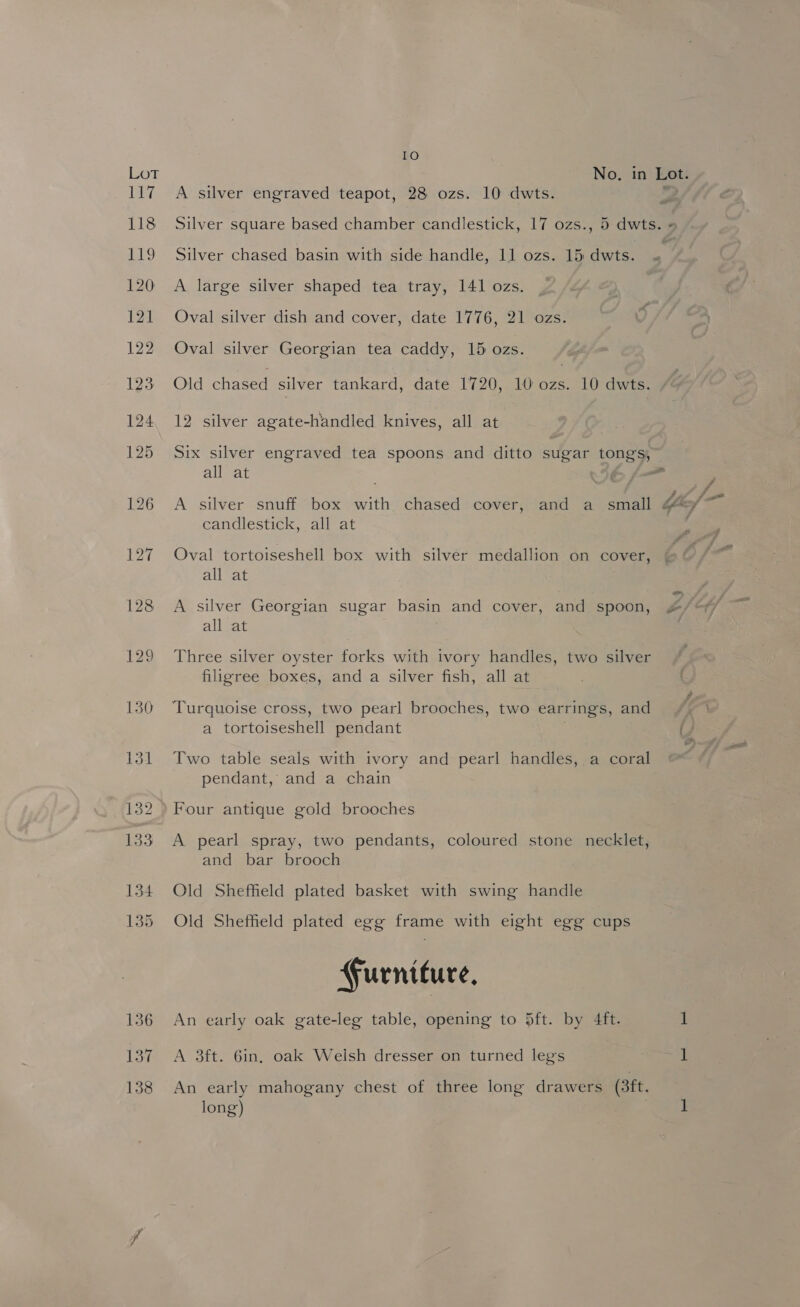 10
Lot No. in Lot.
117 A silver engraved teapot, 28 ozs. 10 dwts.
118 Silver square based chamber candlestick, 17 ozs., 5 dwts.
119 Silver chased basin with side handle, 11 ozs. 15 dwts.
120 A large silver shaped tea tray, 141 ozs.
121 Oval silver dish and cover, date 1776, 21 ozs.
122 Oval silver Georgian tea caddy, 15 ozs.
123 Old chased silver tankard, date 1720, 10 ozs. 10 dwts.
124 12 silver agate-handled knives, all at
125 Six silver engraved tea spoons and ditto sugar tongs,
all at
126 A silver snuff box with chased cover, and a small
candlestick, all at
127 Oval tortoiseshell box with silver medallion on cover,
all at
128 A silver Georgian sugar basin and cover, and spoon,
all at
129 Three silver oyster forks with ivory handles, two silver
filigree boxes, and a silver fish, all at
130 Turquoise cross, two pearl brooches, two earrings, and
a tortoiseshell pendant
131 Two table seals with ivory and pearl handles, a coral
pendant, and a chain
132 Four antique gold brooches
133 A pearl spray, two pendants, coloured stone necklet,
and bar brooch
134 Old Sheffield plated basket with swing handle
135 Old Sheffield plated egg frame with eight egg cups
Furniture.
136 An early oak gate-leg table, opening to 5ft. by 4ft. 1
137 A 3ft. 6in. oak Welsh dresser on turned legs 1
138 An early mahogany chest of three long drawers (3ft.
long) 1